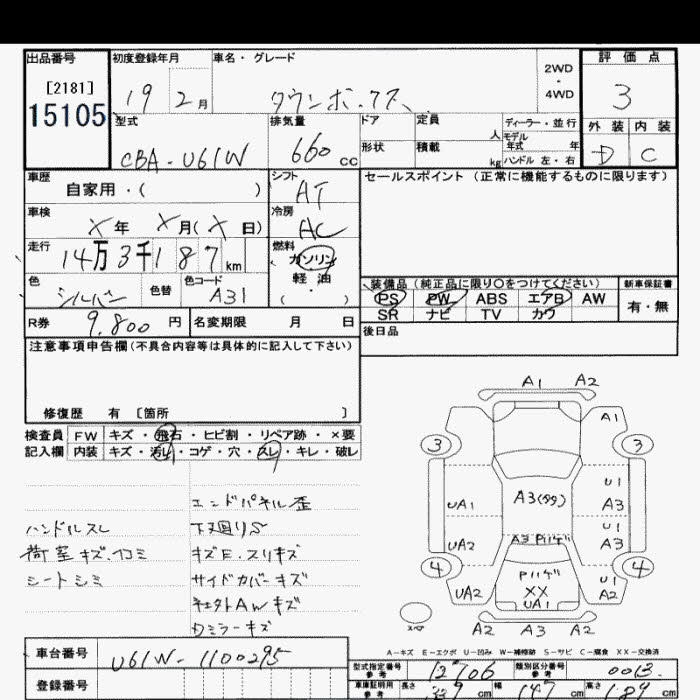 出品番号 初度登録年月 車名・グレード 2WD・4WD 評価点
[2181]
15105
19 2月 タウンボックス 3
型式 排気量 ドア 定員 人 ディーラー・並行 外装 内装
CBA-U61W 660cc 形状 積載 kg モデル年式 年 ハンドル 左・右 D C
車歴 シフト セールスポイント(正常に機能するものに限ります)
自家用・( ) AT
車検 冷房
X年 X月(X日) AC
走行 燃料
14万3千187km ガソリン
色 色替 色コード 軽油 装備品(純正品に限り○をつけてください) 新車保証書
シルバー A31 ( ・ ) PS PW ABS エアB AW 有・無
SR ナビ TV カワ
R券 9,800円 名変期限 月 日 後日品
注意事項申告欄(不具合内容等は具体的に記入して下さい)
修復歴 有 [箇所 ]
検査員 FW キズ・飛石・ヒビ割・リペア跡・×要
記入欄 内装 キズ・汚れ・コゲ・穴・スレ・キレ・破レ
A1 A2
A1
3 3
A3(多タ)
U1
UA1 A3
U1
UA2 A3
A3
4 4
U1
UA2 XX A2
UA1
A2 A3 A2
エンドパネル歪
ハンドルスレ 下廻りS
荷室キズ・凹ミ キズE・スリキズ
シートシミ サイドカバーキズ
AWキズ
Dミラーキズ
A-キズ E-エクボ U-凹み W-補修跡 S-サビ C-腐食 XX-交換済
車台番号 U61W-1100295 型式指定番号 参考 12706 類別区分番号 参考 0013
登録番号 車庫証明用 参考 長さ 339cm 幅 147cm 高さ cm